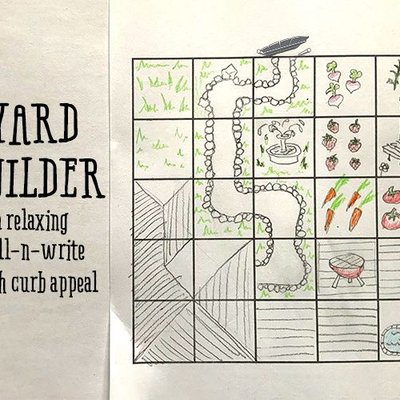 YARD
UILDER
a relaxing
ll-n-write
h curb appeal